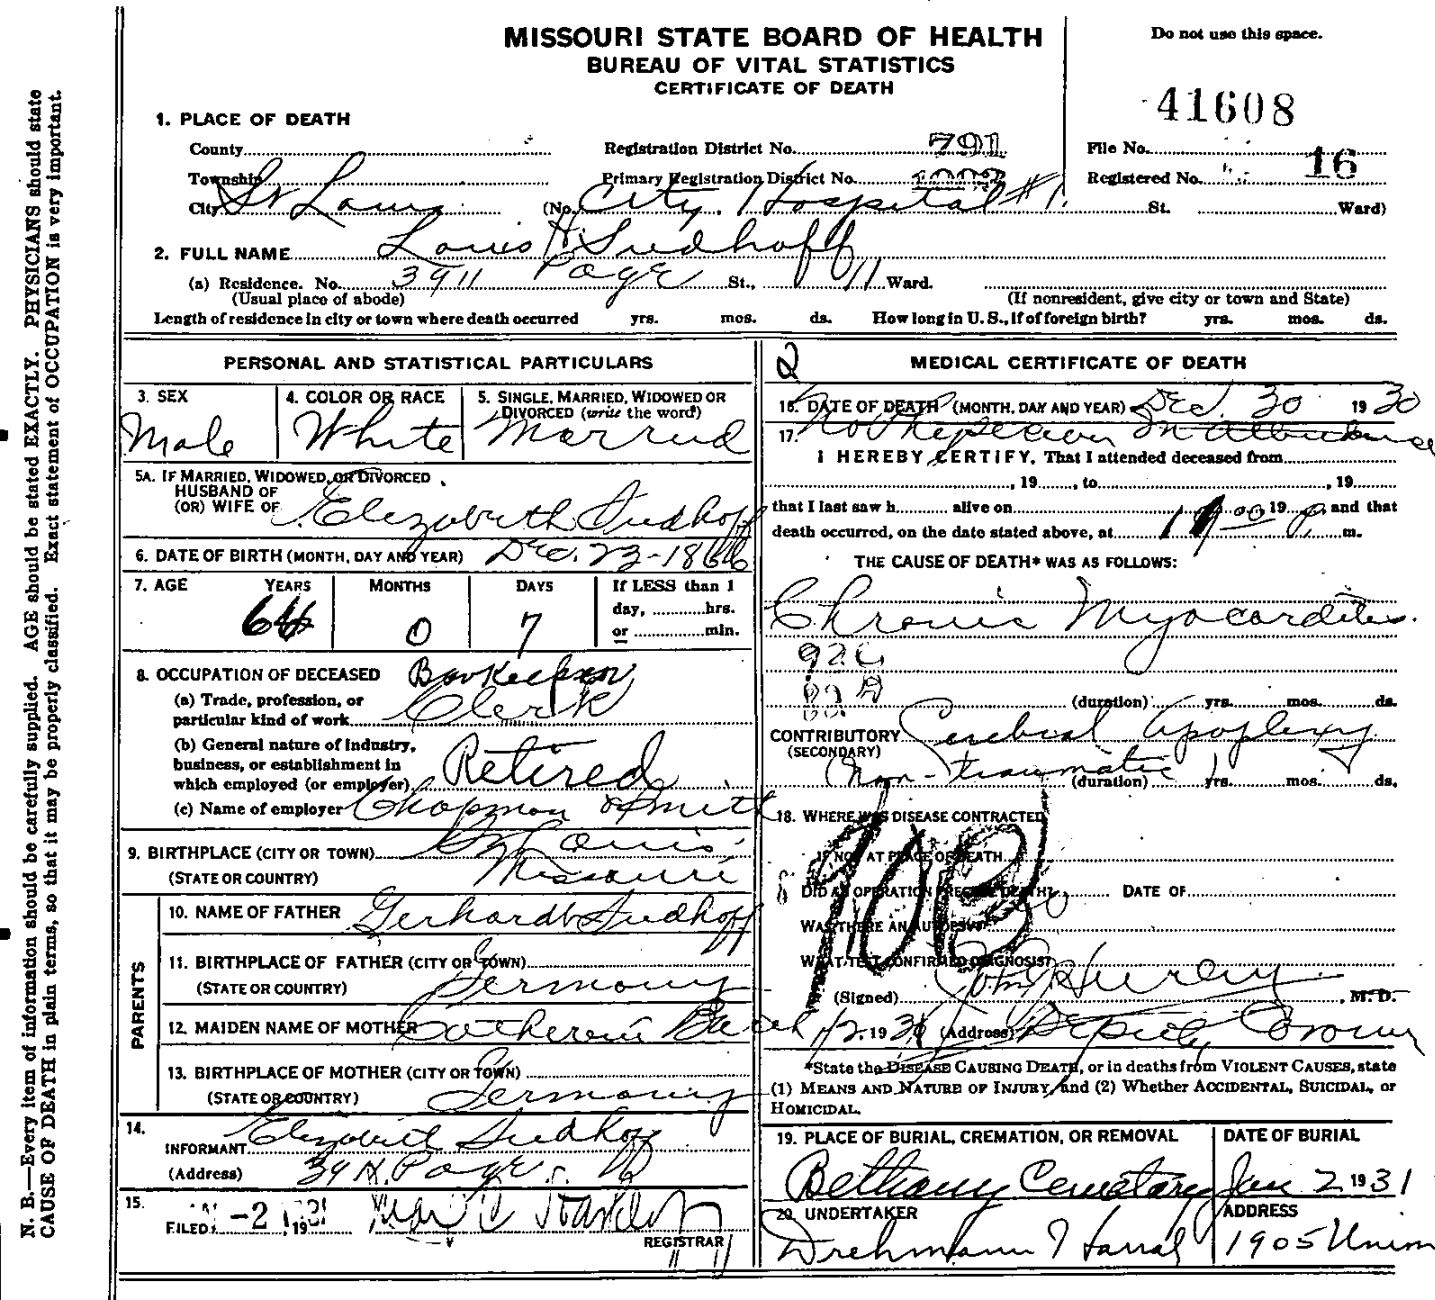 N. B.—Every item of information should be carefully supplied. AGE should be stated EXACTLY. PHYSICIANS should state
CAUSE OF DEATH in plain terms, so that it may be properly classified. Exact statement of OCCUPATION is very important.
MISSOURI STATE BOARD OF HEALTH
BUREAU OF VITAL STATISTICS
CERTIFICATE OF DEATH
Do not use this space.
41608
1. PLACE OF DEATH
County
Registration District No. 791
File No.
Township
Primary Registration District No.
Registered No. 16
City St Louis (No. City Hospital #1. St. Ward)
2. FULL NAME Louis H. Sudhoff
(a) Residence. No. 3911 Page St., 11 Ward.
(Usual place of abode) (If nonresident, give city or town and State)
Length of residence in city or town where death occurred yrs. mos. ds. How long in U. S., if of foreign birth? yrs. mos. ds.
PERSONAL AND STATISTICAL PARTICULARS
3. SEX Male
4. COLOR OR RACE White
5. SINGLE, MARRIED, WIDOWED OR
DIVORCED (write the word)
Married
5A. IF MARRIED, WIDOWED, OR DIVORCED
HUSBAND OF
(OR) WIFE OF Elizabeth Sudhoff
6. DATE OF BIRTH (MONTH, DAY AND YEAR) Dec. 23-1866
7. AGE YEARS MONTHS DAYS If LESS than 1
day, hrs.
or min.
64 0 7
8. OCCUPATION OF DECEASED Bookkeeper
(a) Trade, profession, or
particular kind of work Clerk
(b) General nature of industry,
business, or establishment in
which employed (or employer) Retired
(c) Name of employer Chapman & Smith
9. BIRTHPLACE (CITY OR TOWN) St Louis
(STATE OR COUNTRY) Missouri
PARENTS
10. NAME OF FATHER Gerhardt Sudhoff
11. BIRTHPLACE OF FATHER (CITY OR TOWN)
(STATE OR COUNTRY) Germany
12. MAIDEN NAME OF MOTHER Catherin
13. BIRTHPLACE OF MOTHER (CITY OR TOWN)
(STATE OR COUNTRY) Germany
14.
INFORMANT Elizabeth Sudhoff
(Address) 3911 Page
15.
FILED -2 1931
REGISTRAR
2
MEDICAL CERTIFICATE OF DEATH
16. DATE OF DEATH (MONTH, DAY AND YEAR) Dec. 30 1930
17. No Physician In Attendance
I HEREBY CERTIFY, That I attended deceased from
, 19 , to , 19
that I last saw h alive on 19 and that
death occurred, on the date stated above, at 00 P. m.
THE CAUSE OF DEATH* WAS AS FOLLOWS:
Chronic Myocarditis.
(duration) yrs. mos. ds.
CONTRIBUTORY Cerebral Apoplexy
(SECONDARY)
(Non-traumatic) (duration) yrs. mos. ds.
18. WHERE WAS DISEASE CONTRACTED
IF NOT AT PLACE OF DEATH
90B
DID AN OPERATION PRECEDE DEATH? DATE OF
WAS THERE AN AUTOPSY?
WHAT TEST CONFIRMED DIAGNOSIS?
(Signed) , M. D.
1/2, 1931 (Address) Deputy Coroner
*State the DISEASE CAUSING DEATH, or in deaths from VIOLENT CAUSES, state
(1) MEANS AND NATURE OF INJURY, and (2) Whether ACCIDENTAL, SUICIDAL, or
HOMICIDAL.
19. PLACE OF BURIAL, CREMATION, OR REMOVAL
Bethany Cemetary
DATE OF BURIAL
Jan 2 1931
20. UNDERTAKER
Drehmann Harral
ADDRESS
1905 Union